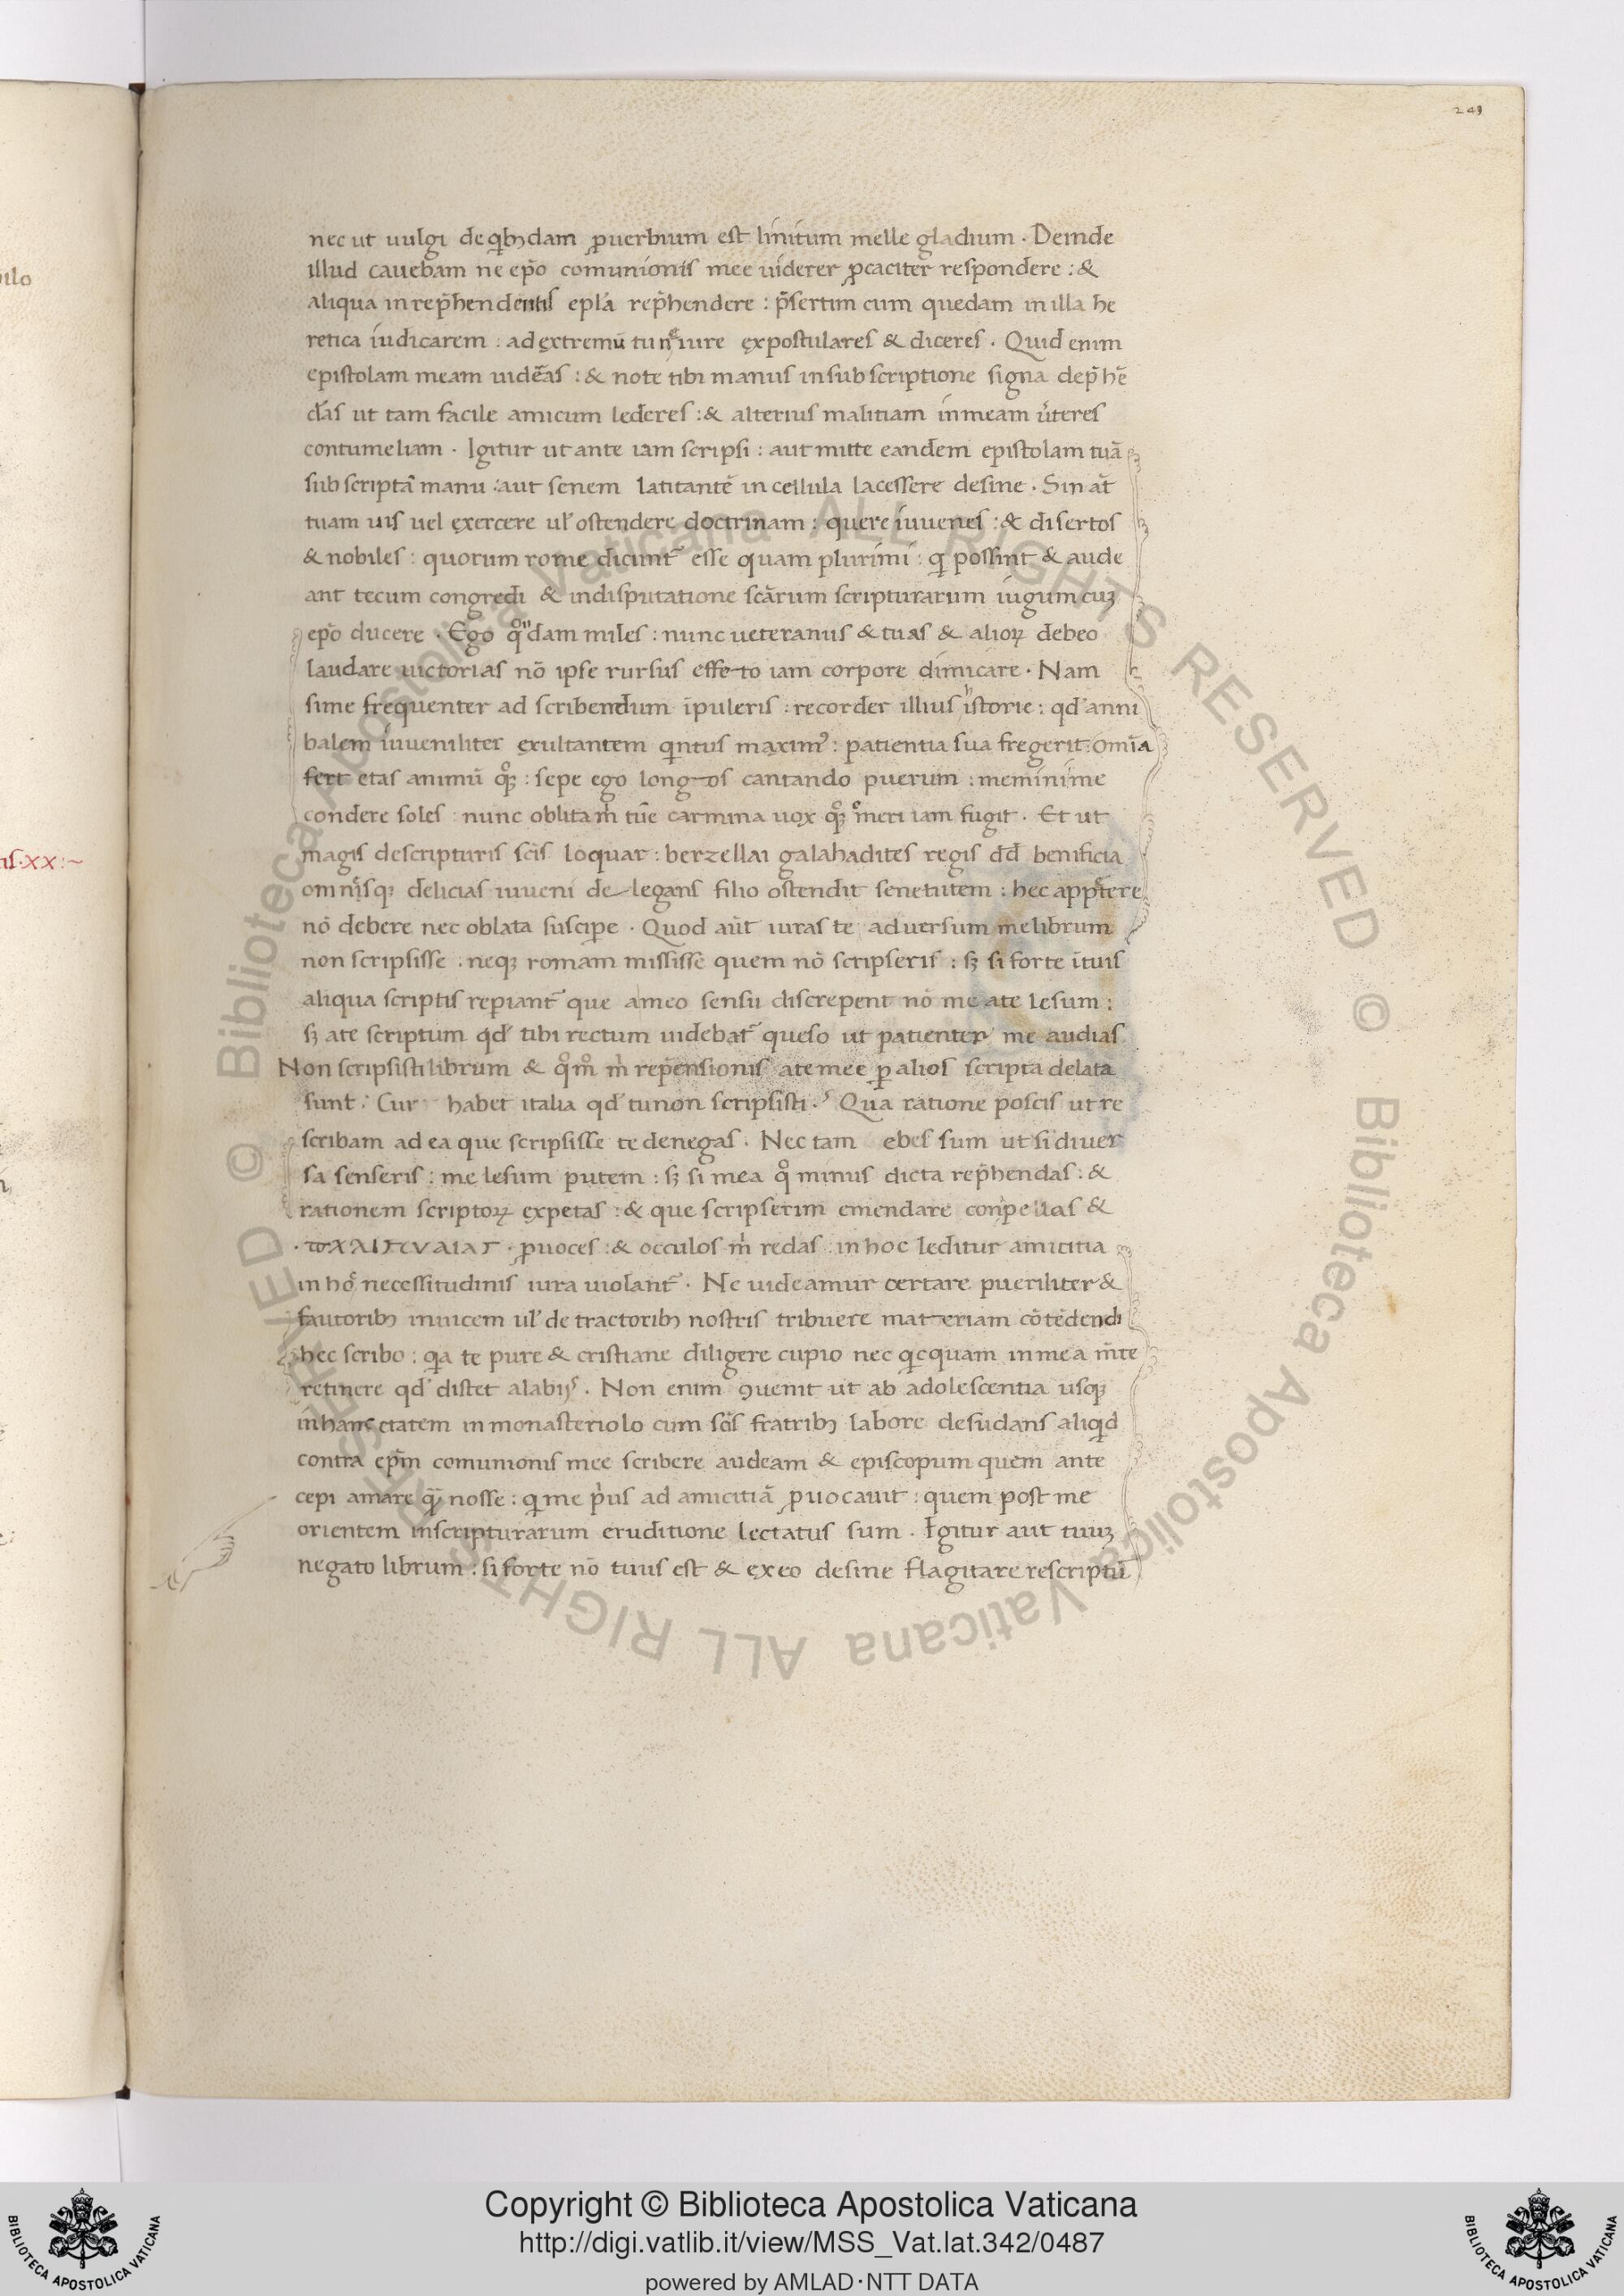 241
nec ut uulgi de qbꝫdam ꝓuerbium est linitum melle gladium . Deinde
illud cauebam ne ep̄o comunionis mee uiderer ꝓcaciter respondere : &
aliqua in rep̄hendentis epl̄a rep̄hendere : p̄sertim cum quedam in illa he
retica iudicarem : ad extremū tu iure expostulares & diceres . Quid enim
epistolam meam uideras : & note tibi manus in subscriptione signa dep̄hē
das ut tam facile amicum lederes : & alterius malitiam in meam u̓teres
contumeliam . Igitur ut ante iam scripsi : aut mitte eandem epistolam tuā
subscriptā manu : aut senem latitantē in cellula lacessere desine . Sin aūt
tuam uis uel exercere ul̓ ostendere doctrinam : quere iuuenes : & disertos
& nobiles : quorum rome dicunt᷑ esse quam plurimi : q possint & aude
ant tecum congredi & in disputatione scārum scripturarum iugum cuꝫ
ep̄o ducere . Ego qͦndam miles : nunc ueteranus & tuas & alioꝝ debeo
laudare uictorias nō ipse rursus effeto iam corpore dimicare . Nam
si me frequenter ad scribendum īpuleris : recorder illius istorie : qd̓ anni
balem iuueniliter exultantem qintus maximꝰ : patientia sua fregerit : omīa
fert etas animū qͦꝫ : sepe ego longos cantando puerum : memini me
condere soles : nunc oblita m̄ carmina uox qͦꝫ meri iam fugit . Et ut
magis de scripturis scīs loquar : berzellai galahadites regis dd̄ benificia
omnisqꝫ delicias iuueni delegans filio ostendit senetutem : hec appetere
nō debere nec oblata suscipe . Quod aūt iuras te aduersum me librum
non scripsisse . neqꝫ romam mississe quem nō scripseris : sꝫ si forte ī tuis
aliqua scriptis repiant᷑ que a meo sensu discrepent nō me a te lesum :
sꝫ a te scriptum qd̓ tibi rectum uidebat᷑ queso ut patienter me audias
Non scripsisti librum & qͦmͦ m̄ repensionis a te mee ꝑ alios scripta delata
sunt : Cur habet italia qd̓ tu non scripsisti . Qua ratione poscis ut re
scribam ad ea que scripsisse te denegas . Nec tam ebes sum ut si diuer
sa senseris : me lesum putem : sꝫ si mea qͦ minus dicta rep̄hendas : &
rationem scriptoꝝ expetas : & que scripserim emendare conpellas &
ꝓuoces : & occulos m̄ redas : in hoc leditur amicitia
in hoͨ necessitudinis iura uiolant᷑ . Ne uideamur certare pueriliter &
fautoribꝫ inuicem ul̓ detractoribꝫ nostris tribuere materiam cōtēdendi
hec scribo : qa te pure & cristiane diligere cupio nec qcquam in mea m̄te
retinere qd̓ distet a labijs . Non enim ꝯuenit ut ab adolescentia usqꝫ
in hanc etatem in monasteriolo cum scīs fratribꝫ labore desudans aliqd
contra ep̄m comunionis mee scribere audeam & episcopum quem ante
cepi amare q̄ nosse : q me p̓us ad amicitiā ꝓuocauit : quem post me
orientem in scripturarum eruditione lectatus sum . Igitur aut tuuꝫ
negato librum : si forte nō tuus est & ex eo desine flagitare rescriptū
tis · xx :~
© Biblioteca Apostolica Vaticana ALL RIGHTS RESERVED © Biblioteca Apostolica Vaticana ALL RIGHTS RESERVED
Copyright © Biblioteca Apostolica Vaticana
http://digi.vatlib.it/view/MSS_Vat.lat.342/0487
powered by AMLAD·NTT DATA
BIBLIOTECA APOSTOLICA VATICANA
BIBLIOTECA APOSTOLICA VATICANA